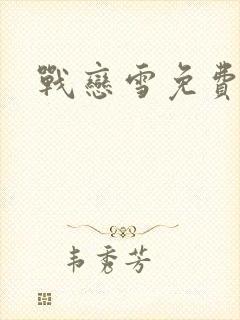 戰戀雪免費
韦秀芳